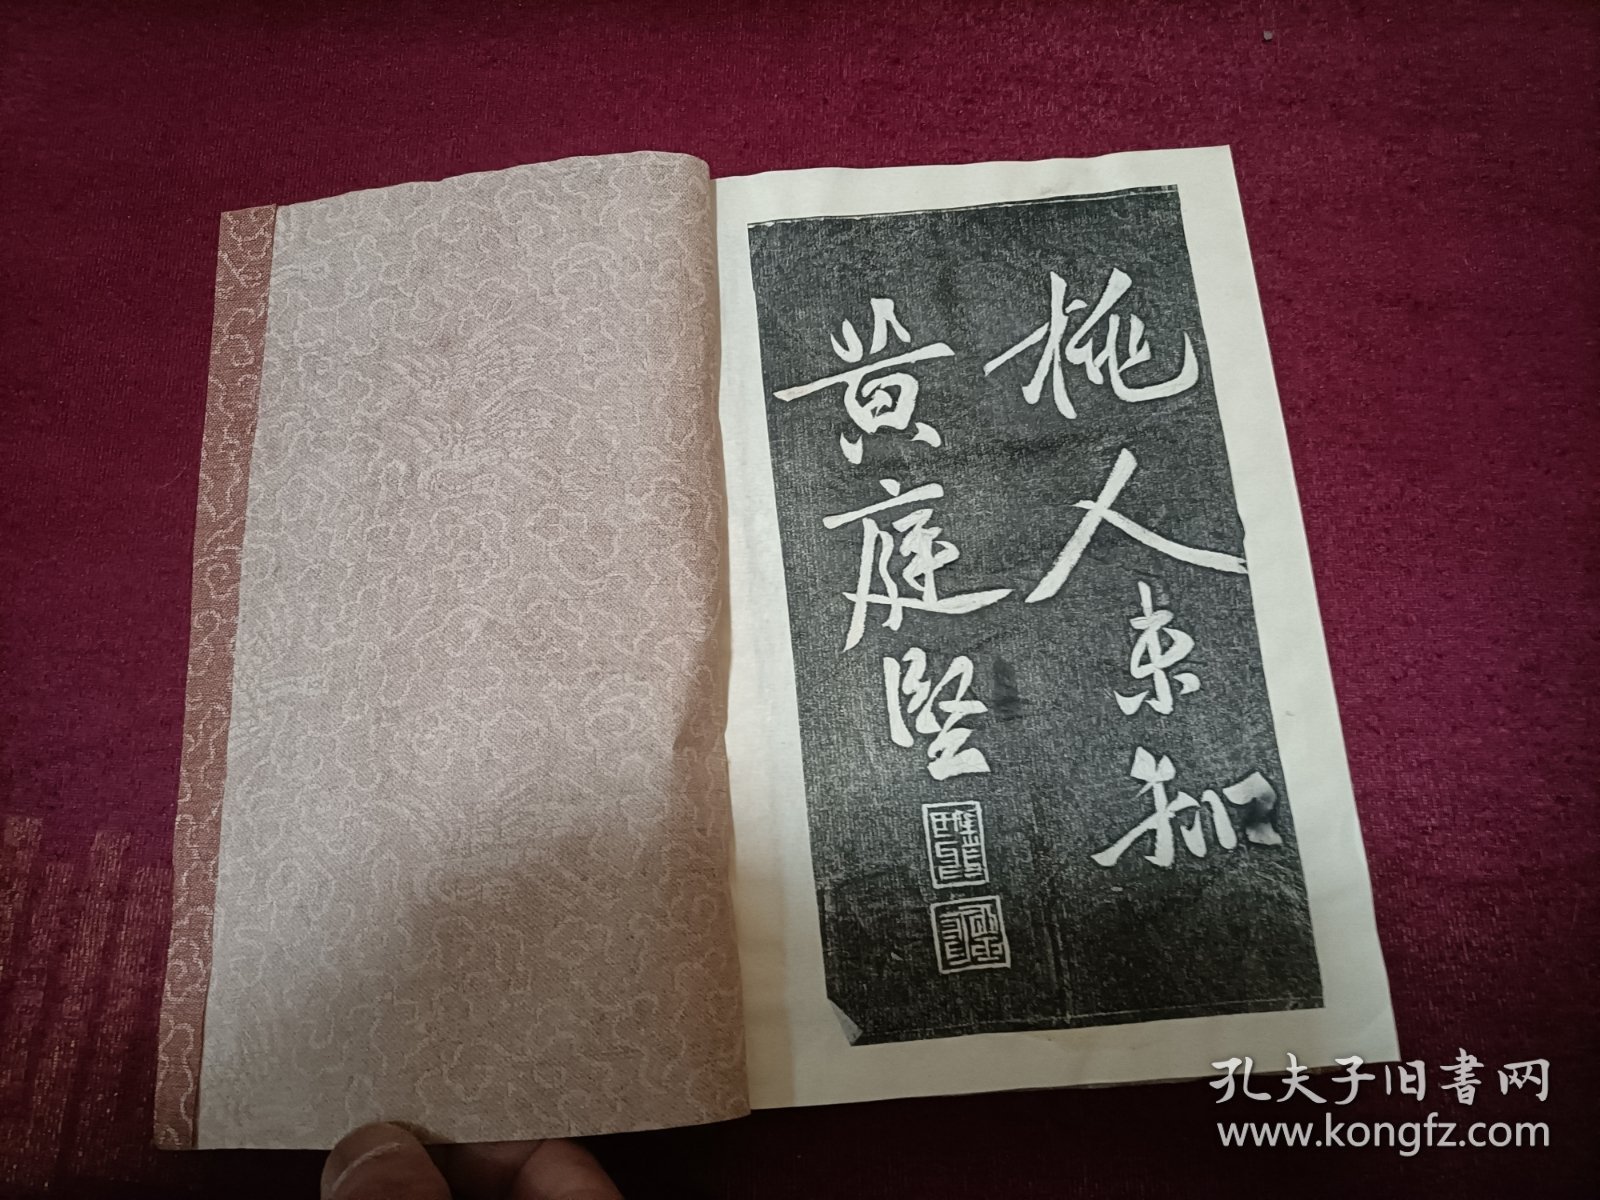 桃人知
黄庭坚
孔夫子旧書网
www.kongfz.com